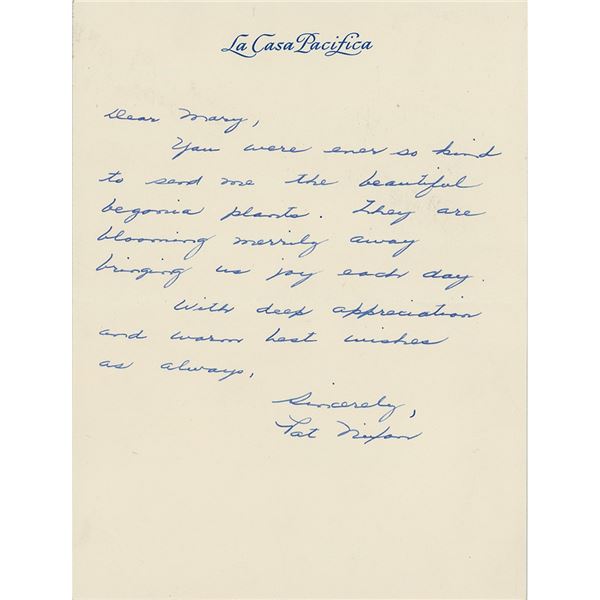 La Casa Pacifica
Dear Mary,
You were ever so kind
to send me the beautiful
begonia plants. They are
blooming merrily away
bringing us joy each day.
With deep appreciation
and warm best wishes
as always,
Sincerely,
Pat Nixon